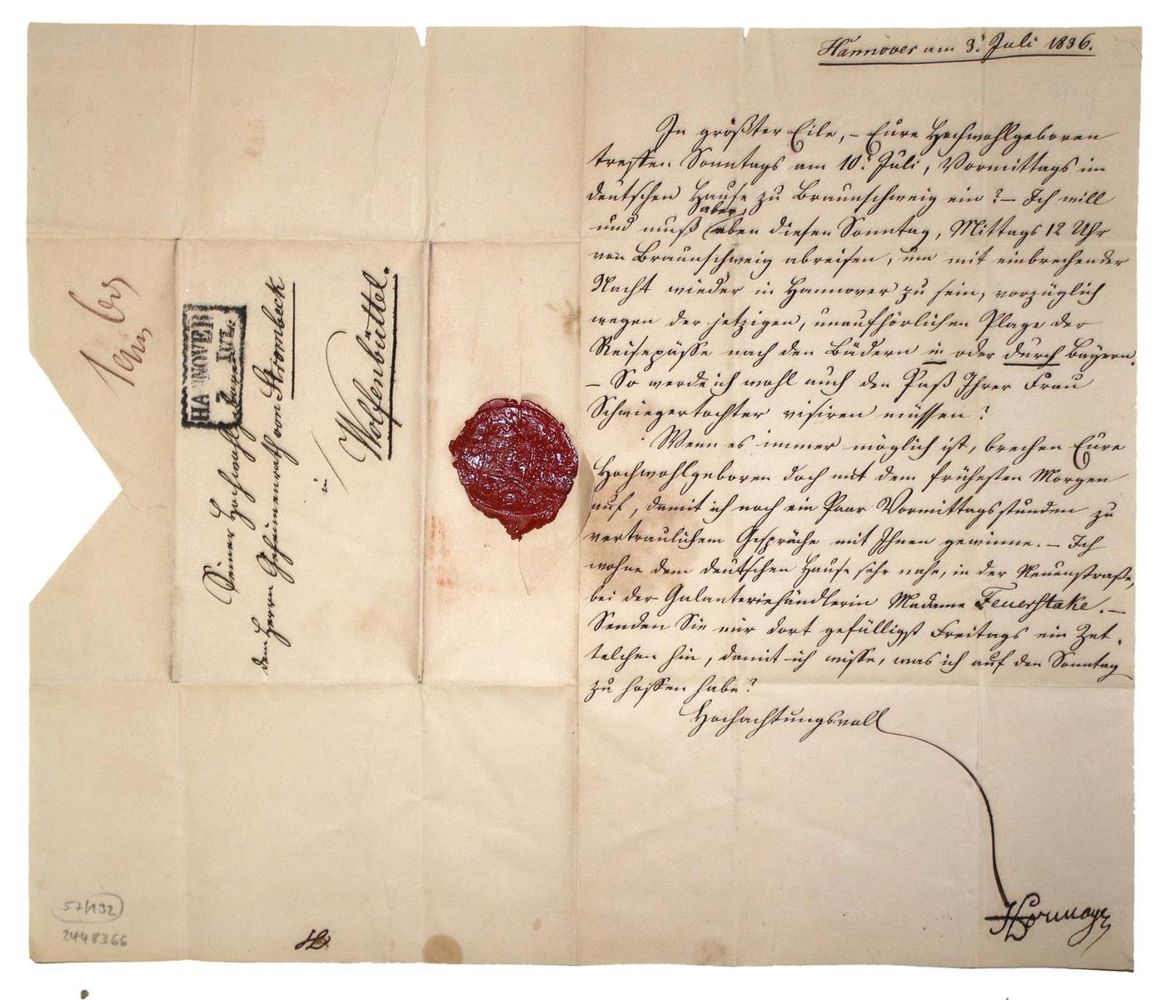 Hannover am 3t Juli 1836.
In größter Eile, – Eure Hochwohlgeboren
treffen Sonntags am 10t Juli, Vormittags im
deutschen Hause zu Braunschweig ein? – Ich will
aber
und muß eben diesen Sonntag, Mittags 12 Uhr
von Braunschweig abreisen, um mit einbrechender
Nacht wieder in Hannover zu sein, vorzüglich
wegen der jetzigen, unaufhörlichen Plage der
Reisepässe nach den Bädern in oder durch Bayern.
– So werde ich wohl auch den Paß Ihrer Frau
Schwiegertochter visiren müssen?
Wenn es immer möglich ist, brechen Eure
Hochwohlgeboren doch mit dem frühesten Morgen
auf, damit ich noch ein Paar Vormittagsstunden zu
vertraulichem Gespräche mit Ihnen gewinne. – Ich
wohne dem deutschen Hause sehr nahe, in der Neuenstraße,
bei der Galanteriehändlerin Madame Feuerstake. –
Senden Sie mir dort gefälligst Freitags ein Zet-
telchen hin, damit ich wisse, was ich auf den Sonntag
zu hoffen habe?
Hochachtungsvoll
Hormayr
Seiner Hochwohlgeboren
dem Herrn Geheimenrath von Strombeck
in
Wolfenbüttel.
HANNOVER
JUL.
57/132
2448366